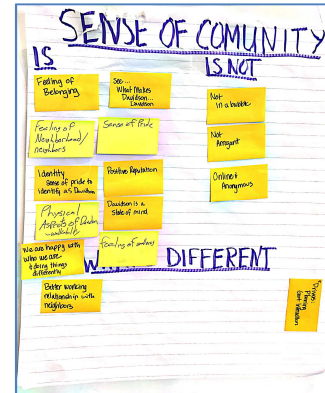 SENSE OF COMUNITY
IS
Feeling of
Belonging
See...
What Makes
Davidson...
Davidson
Feeling of
Neighborhood/
neighbors
Sense of Pride
Identity
Sense of pride to
identify as Davidson
Positive Reputation
Physical
Aspects of
walkable
Davidson is a
State of mind
We are happy with
who we are
+ doing things
differently
Feeling of
Better working
relationship with
neighbors
IS NOT
Not
in a bubble
Not
Arrogant
Online +
Anonymous
W
DIFFERENT
Planning